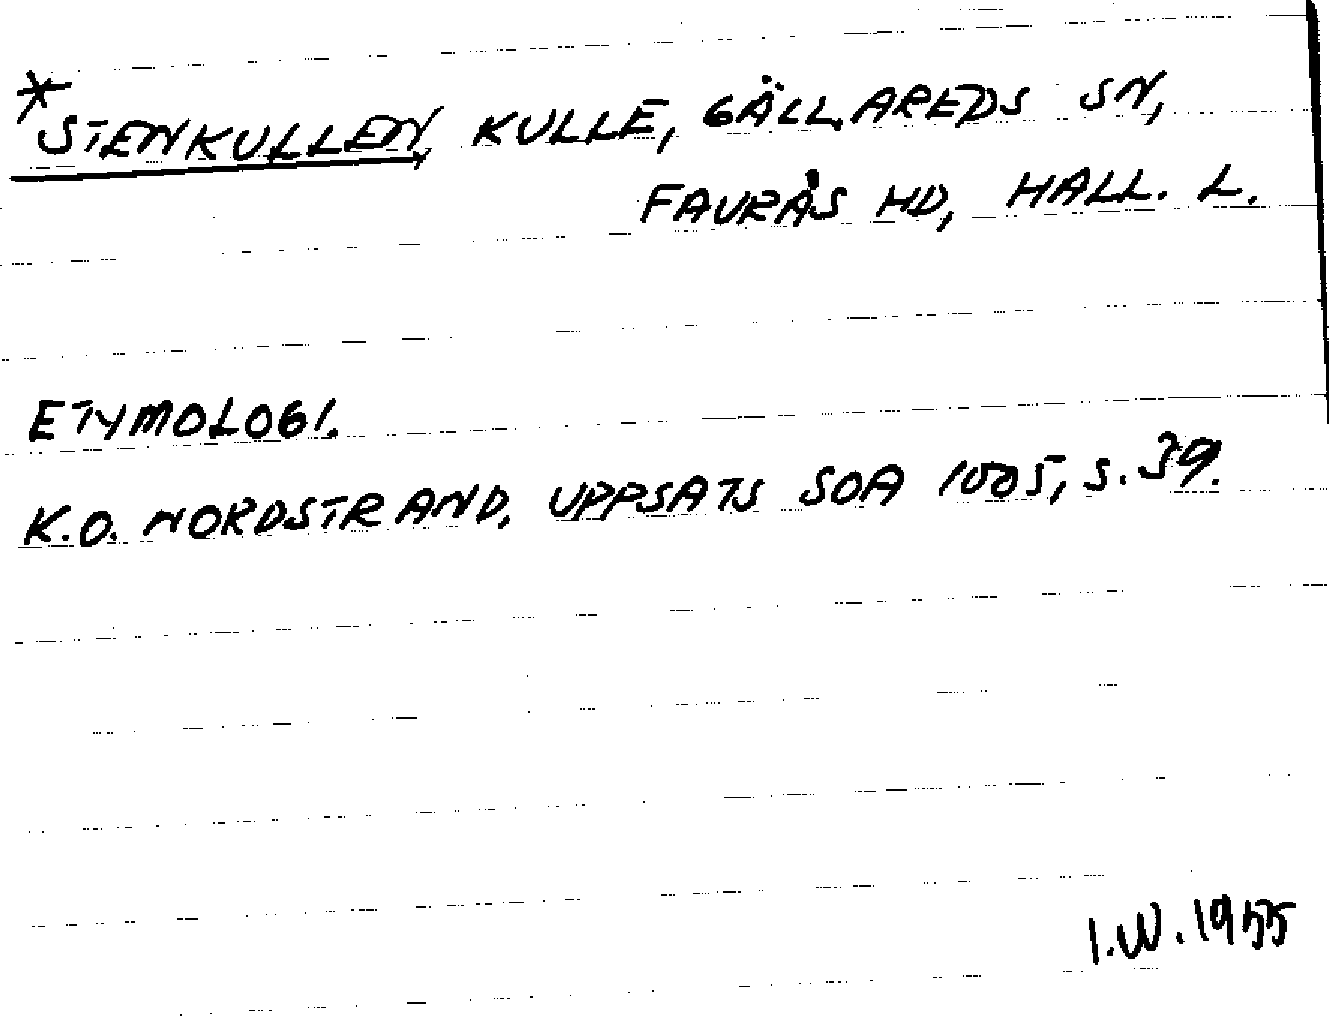 *STENKULLEN, KULLE, GÄLLAREDS SN,
FAURÅS HD, HALL. L.
ETYMOLOGI.
K.O. NORDSTRAND, UPPSATS SOA 1005, S. 39.
I.W. 1955